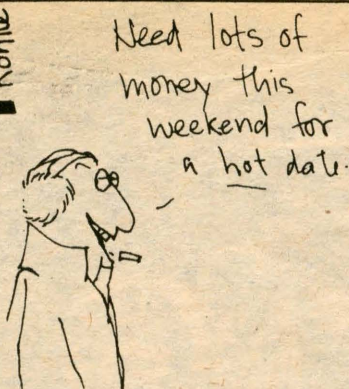 Need lots of
money this
weekend for
a hot date.